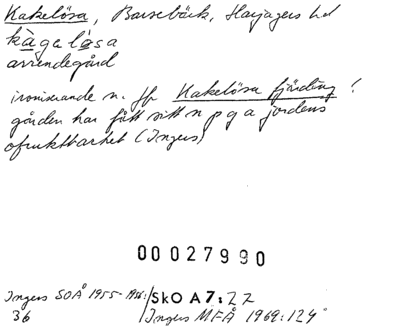 Kakelösa, Barsebäck, Harjagers hd
kàgalása
arrendegård
ironiserande n. jfr Kakelösa fjärding!
gården har fått sitt n p g a jordens
ofruktbarhet (Ingers)
00027990
Ingers SOÅ 1955-1956:/SkO A7:22
36 /Ingers MFÅ 1969:124